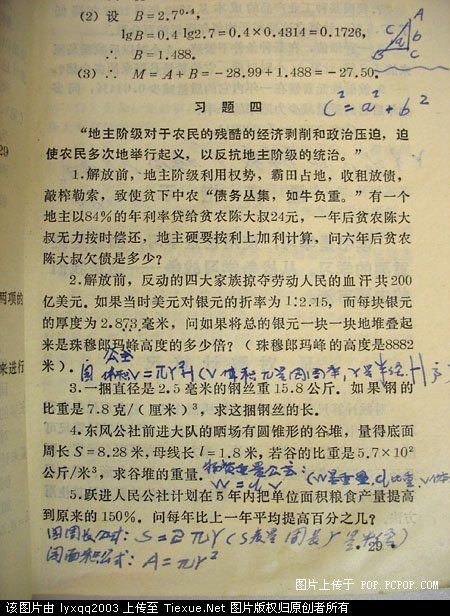 (2) 设 B=2.7^0.4,
lgB=0.4 lg2.7=0.4×0.4314=0.1726,
∴ B=1.488.
(3) ∴ M=A+B=-28.99+1.488=-27.50.
A
C b
a
B C
习题四
c²=a²+b²
“地主阶级对于农民的残酷的经济剥削和政治压迫，迫
使农民多次地举行起义，以反抗地主阶级的统治。”
29
1.解放前，地主阶级利用权势，霸田占地，收租放债，
敲榨勒索，致使贫下中农“债务丛集，如牛负重。”有一个
地主以84%的年利率贷给贫农陈大叔24元，一年后贫农陈大
叔无力按时偿还，地主硬要按利上加利计算，问六年后贫农
陈大叔欠债是多少？
2.解放前，反动的四大家族掠夺劳动人民的血汗共200
两项的
亿美元．如果当时美元对银元的折率为1:2.15，而每块银元
的厚度为2.873毫米，问如果将总的银元一块一块地堆叠起
来是珠穆郎玛峰高度的多少倍？（珠穆郎玛峰的高度是8882
来进行
米）．
公式
V=πr²H (V体积 π是圆周率, r是半径 H
3.一捆直径是2.5毫米的钢丝重15.8公斤．如果钢的
比重是7.8克/（厘米）³，求这捆钢丝的长．
4.东风公社前进大队的晒场有圆锥形的谷堆，量得底面
周长S=8.28米，母线长l=1.8米，若谷的比重是5.7×10²
公斤/米³，求谷堆的重量．
物资重量公式:
W=d.V
(W是重量, d比重, V体
5.跃进人民公社计划在5年内把单位面积粮食产量提高
到原来的150%．问每年比上一年平均提高百分之几？
圆周长公式: S=2πr (S表是圆长 r是半径)
圆面积公式: A=πr²
·29·
图片上传于 POP.PCPOP.COM
[该图由 lyxqq2003 上传至 Tiexue.Net 图片版权归原创者所有